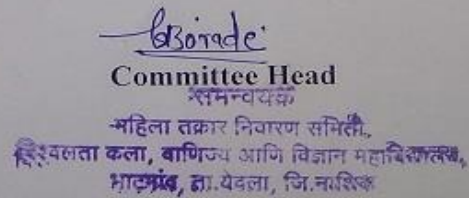 Borade
Committee Head
समन्वयक
महिला तक्रार निवारण समिती,
कला, वाणिज्य आणि विज्ञान महाविद्यालय,
भाटगांव, ता.येवला, जि.नाशिक